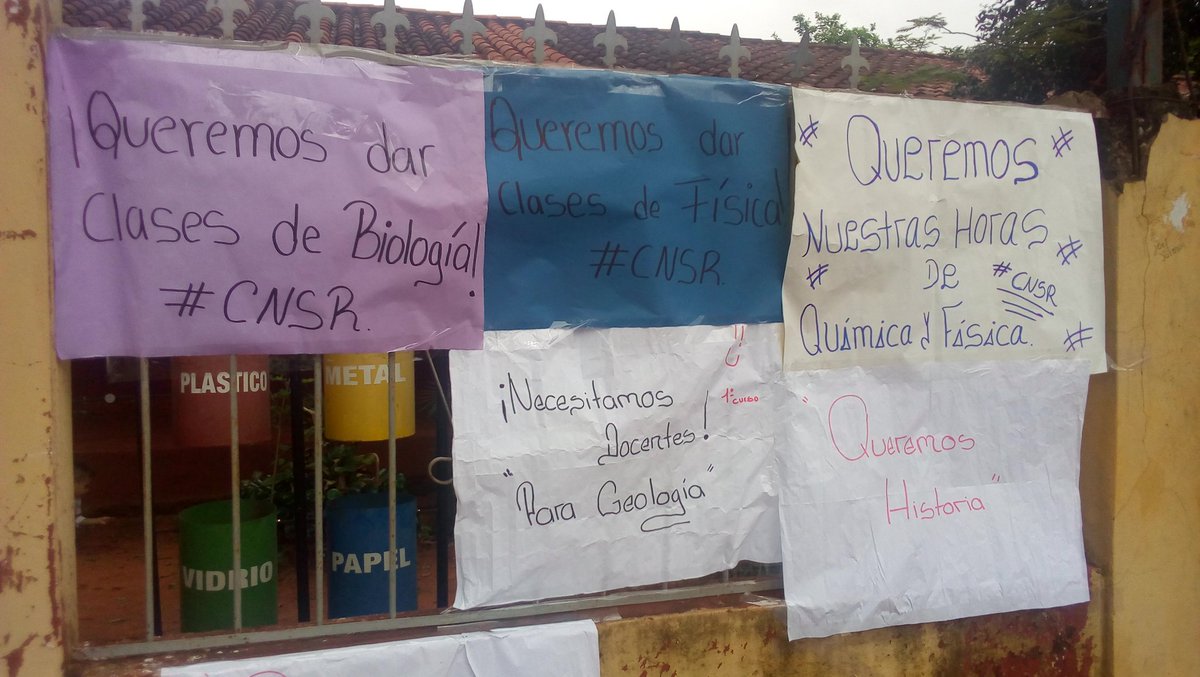 ¡Queremos dar
Clases de Biología!
#CNSR.
Queremos dar
Clases de Física!
#CNSR.
# Queremos #
Nuestras Horas #
# De #CNSR
Química y Física. #
¡Necesitamos
Docentes!
"Para Geología"
1º curso
"Queremos
Historia"
PLASTICO
METAL
VIDRIO
PAPEL